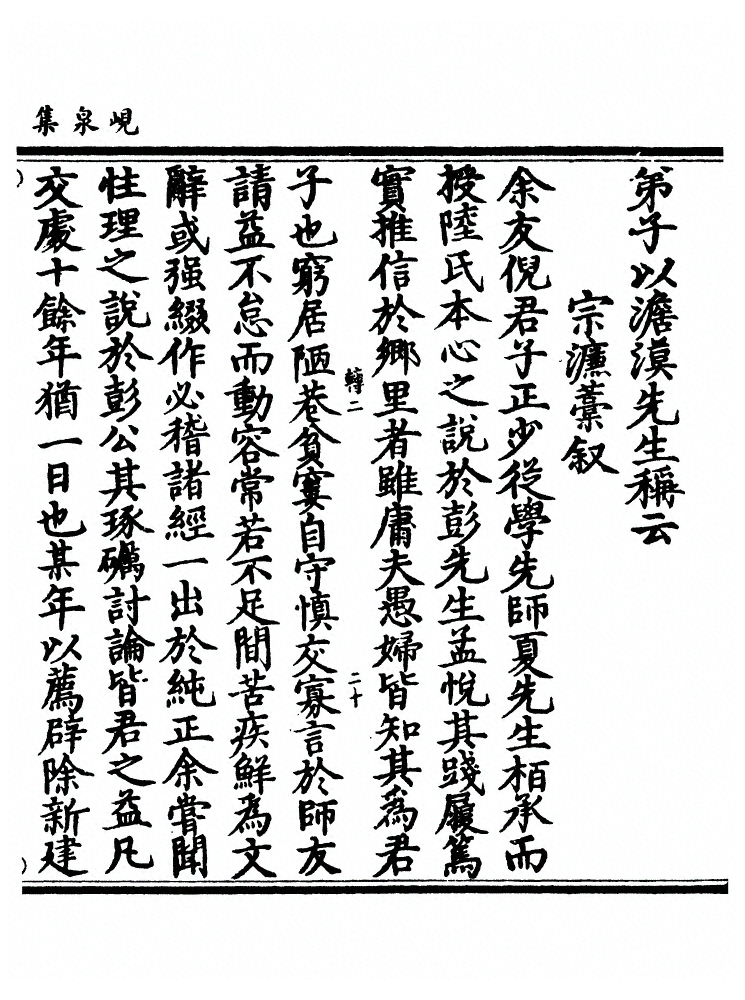 集泉峴
弟子以澹漠先生稱云
宗濂藁叙
余友倪君子正少從學先師夏先生栢承而
授陸氏本心之說於彭先生孟悅其踐履篤
實推信於鄉里者雖庸夫愚婦皆知其爲君
轉二
二十
子也窮居陋巷貧窶自守慎交寡言於師友
請益不怠而動容常若不足間苦疾鮮爲文
辭或强綴作必稽諸經一出於純正余嘗聞
性理之說於彭公其琢礪討論皆君之益凡
交處十餘年猶一日也某年以薦辟除新建